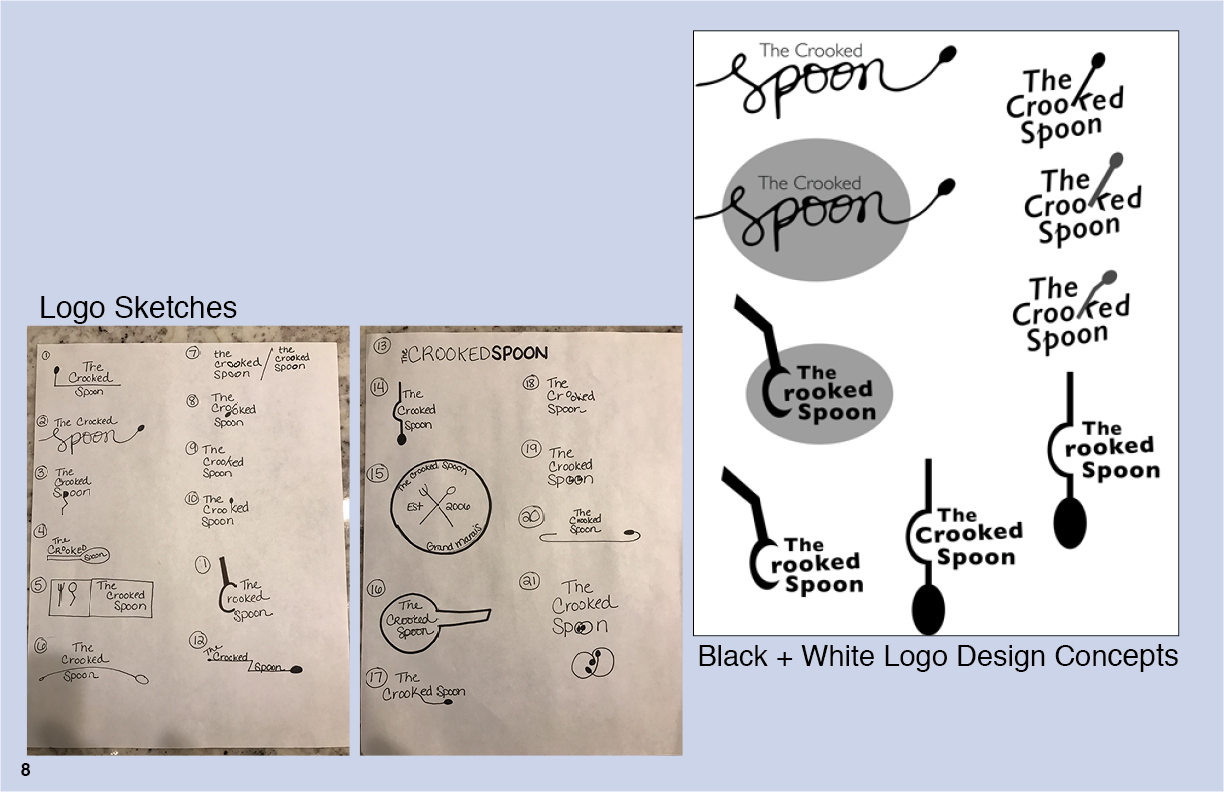 Logo Sketches
1
The
Crooked
Spoon
2
The Crooked
Spoon
3
The
Crooked
Spoon
4
The
Crooked
Spoon
5
The
Crooked
Spoon
6
The
Crooked
Spoon
7
the
crooked
spoon
the
crooked
spoon
8
The
Crooked
Spoon
9
The
Crooked
Spoon
10
The
Crooked
Spoon
1
The
rooked
Spoon
12
The
Crooked
Spoon
13
The CROOKEDSPOON
14
The
Crooked
Spoon
15
The Crooked Spoon
Est 2006
Grand Marais
16
The
Crooked
Spoon
17
The
Crooked Spoon
18
The
Crooked
Spoon
19
The
Crooked
Spoon
20
The
Crooked
Spoon
21
The
Crooked
Spoon
The Crooked
spoon
The Crooked
spoon
The
Crooked
Spoon
The
Crooked
Spoon
The
Crooked
Spoon
The
Crooked
Spoon
The
rooked
Spoon
The
rooked
Spoon
The
Crooked
Spoon
The
rooked
Spoon
Black + White Logo Design Concepts
8